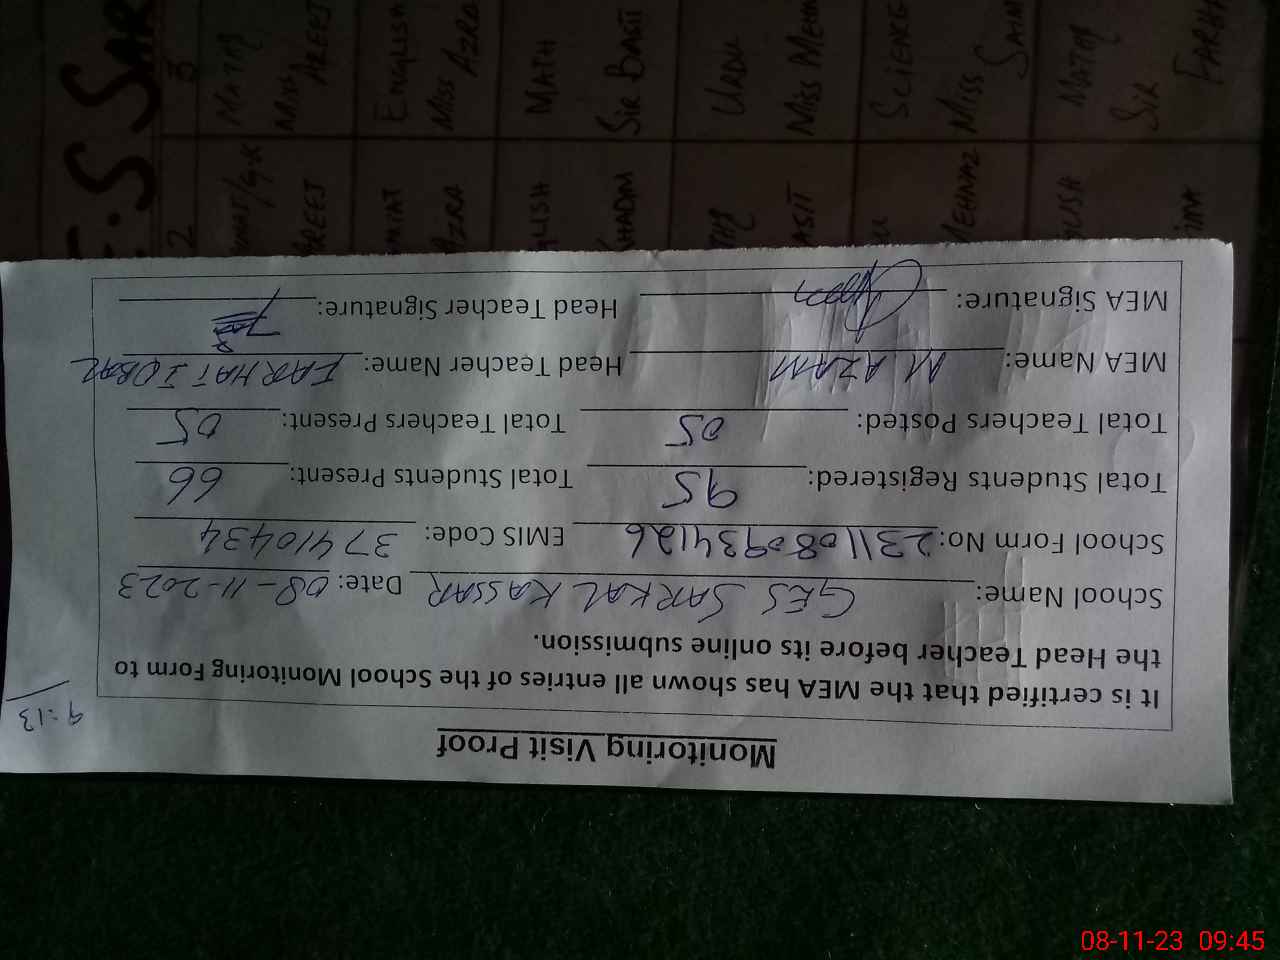 Monitoring Visit Proof
9:13
It is certified that the MEA has shown all entries of the School Monitoring Form to
the Head Teacher before its online submission.
School Name: GES SARKAL KASSAR Date: 08-11-2023
School Form No: 2311080934126 EMIS Code: 37410434
Total Students Registered: 95 Total Students Present: 66
Total Teachers Posted: 05 Total Teachers Present: 05
MEA Name: M AZAM Head Teacher Name: FARHAT IQBAL
MEA Signature: Head Teacher Signature:
S SAR
3
MATH
MISS AREEJ
ENGLISH
MISS AZRA
MATH
SIR BASIT
URDU
SCIENCE
MISS
MATH
SIR
2
AREEJ
AZRA
KHADIM
MEHNAZ
08-11-23 09:45